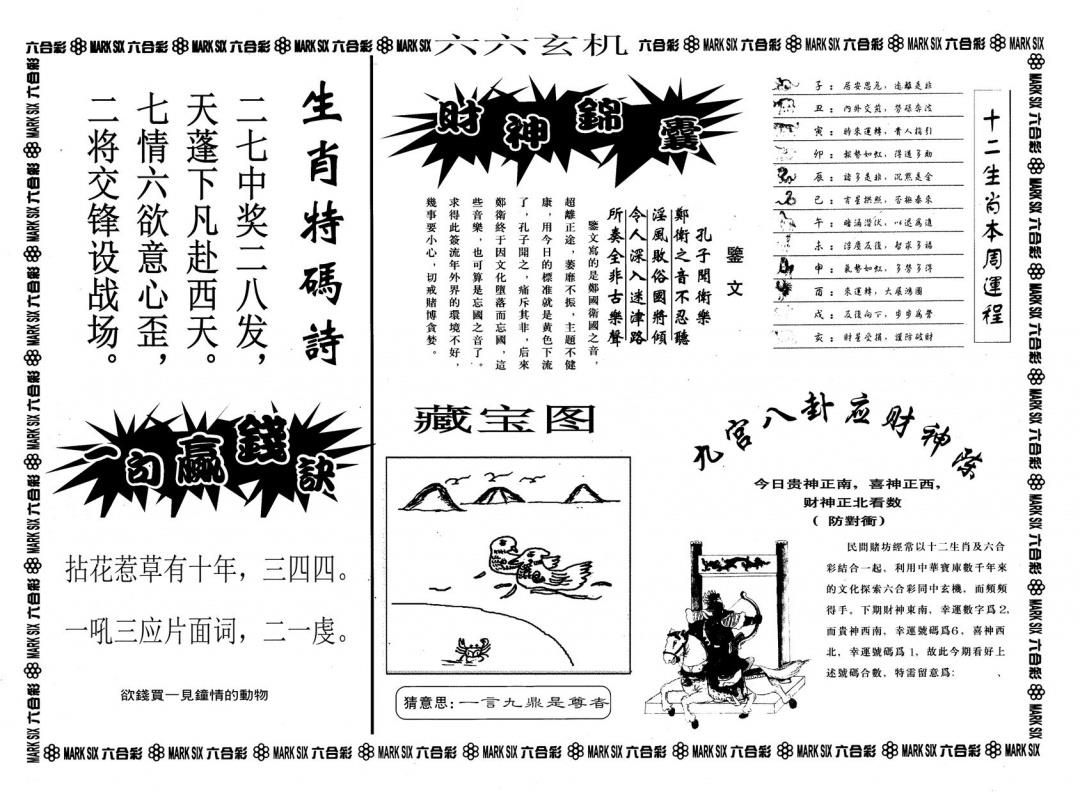 六合彩 MARK SIX 六合彩 MARK SIX 六合彩 MARK SIX 六合彩 MARK SIX 六六玄机 六合彩 MARK SIX 六合彩 MARK SIX 六合彩 MARK SIX 六合彩 MARK SIX
生肖特碼詩
二七中奖二八发，
天蓬下凡赴西天。
七情六欲意心歪，
二将交锋设战场。
一句赢錢訣
拈花惹草有十年，三四四。
一吼三应片面词，二一虔。
欲錢買一見鐘情的動物
財神錦囊
鑒文
孔子聞衛樂
鄭衛之音不忍聽
淫風敗俗國將傾
令人深入迷津路
所奏全非古樂聲
鑒文寫的是鄭國衛國之音，
超離正途，萎靡不振，主題不健
康，用今日的標准就是黄色下流
了，孔子聞之，痛斥其非，后來
鄭衛終于因文化墮落而忘國，這
些音樂，也可算是忘國之音了。
求得此簽流年外界的環境不好，
幾事要小心，切戒賭博貪婪。
十二生肖本周運程
子：居安思危，遠離是非
丑：内外交煎，勞碌奔波
寅：時來運轉，貴人指引
卯：報勢如虹，得道多助
辰：諸多是非，沉默是金
巳：吉星拱照，否極泰來
午：暗涌潜伏，以退爲進
未：浮塵反復，智求多福
申：氣勢如虹，多勞多得
酉：來運轉，大展鴻圖
戌：反復向下，步步爲營
亥：財星受損，謹防破財
藏宝图
猜意思：一言九鼎是尊者
九宫八卦应财神祭
今日贵神正南，喜神正西，
财神正北看数
（防對衝）
民間賭坊經常以十二生肖及六合
彩結合一起，利用中華寶庫數千年來
的文化探索六合彩同中玄機，而頻頻
得手。下期財神東南，幸運數字爲2，
而貴神西南，幸運號碼爲6，喜神西
北，幸運號碼爲1，故此今期看好上
述號碼合數，特需留意爲：　、
MARK SIX 六合彩 MARK SIX 六合彩 MARK SIX 六合彩 MARK SIX 六合彩 MARK SIX 六合彩 MARK SIX 六合彩 MARK SIX 六合彩 MARK SIX 六合彩 MARK SIX 六合彩 MARK SIX